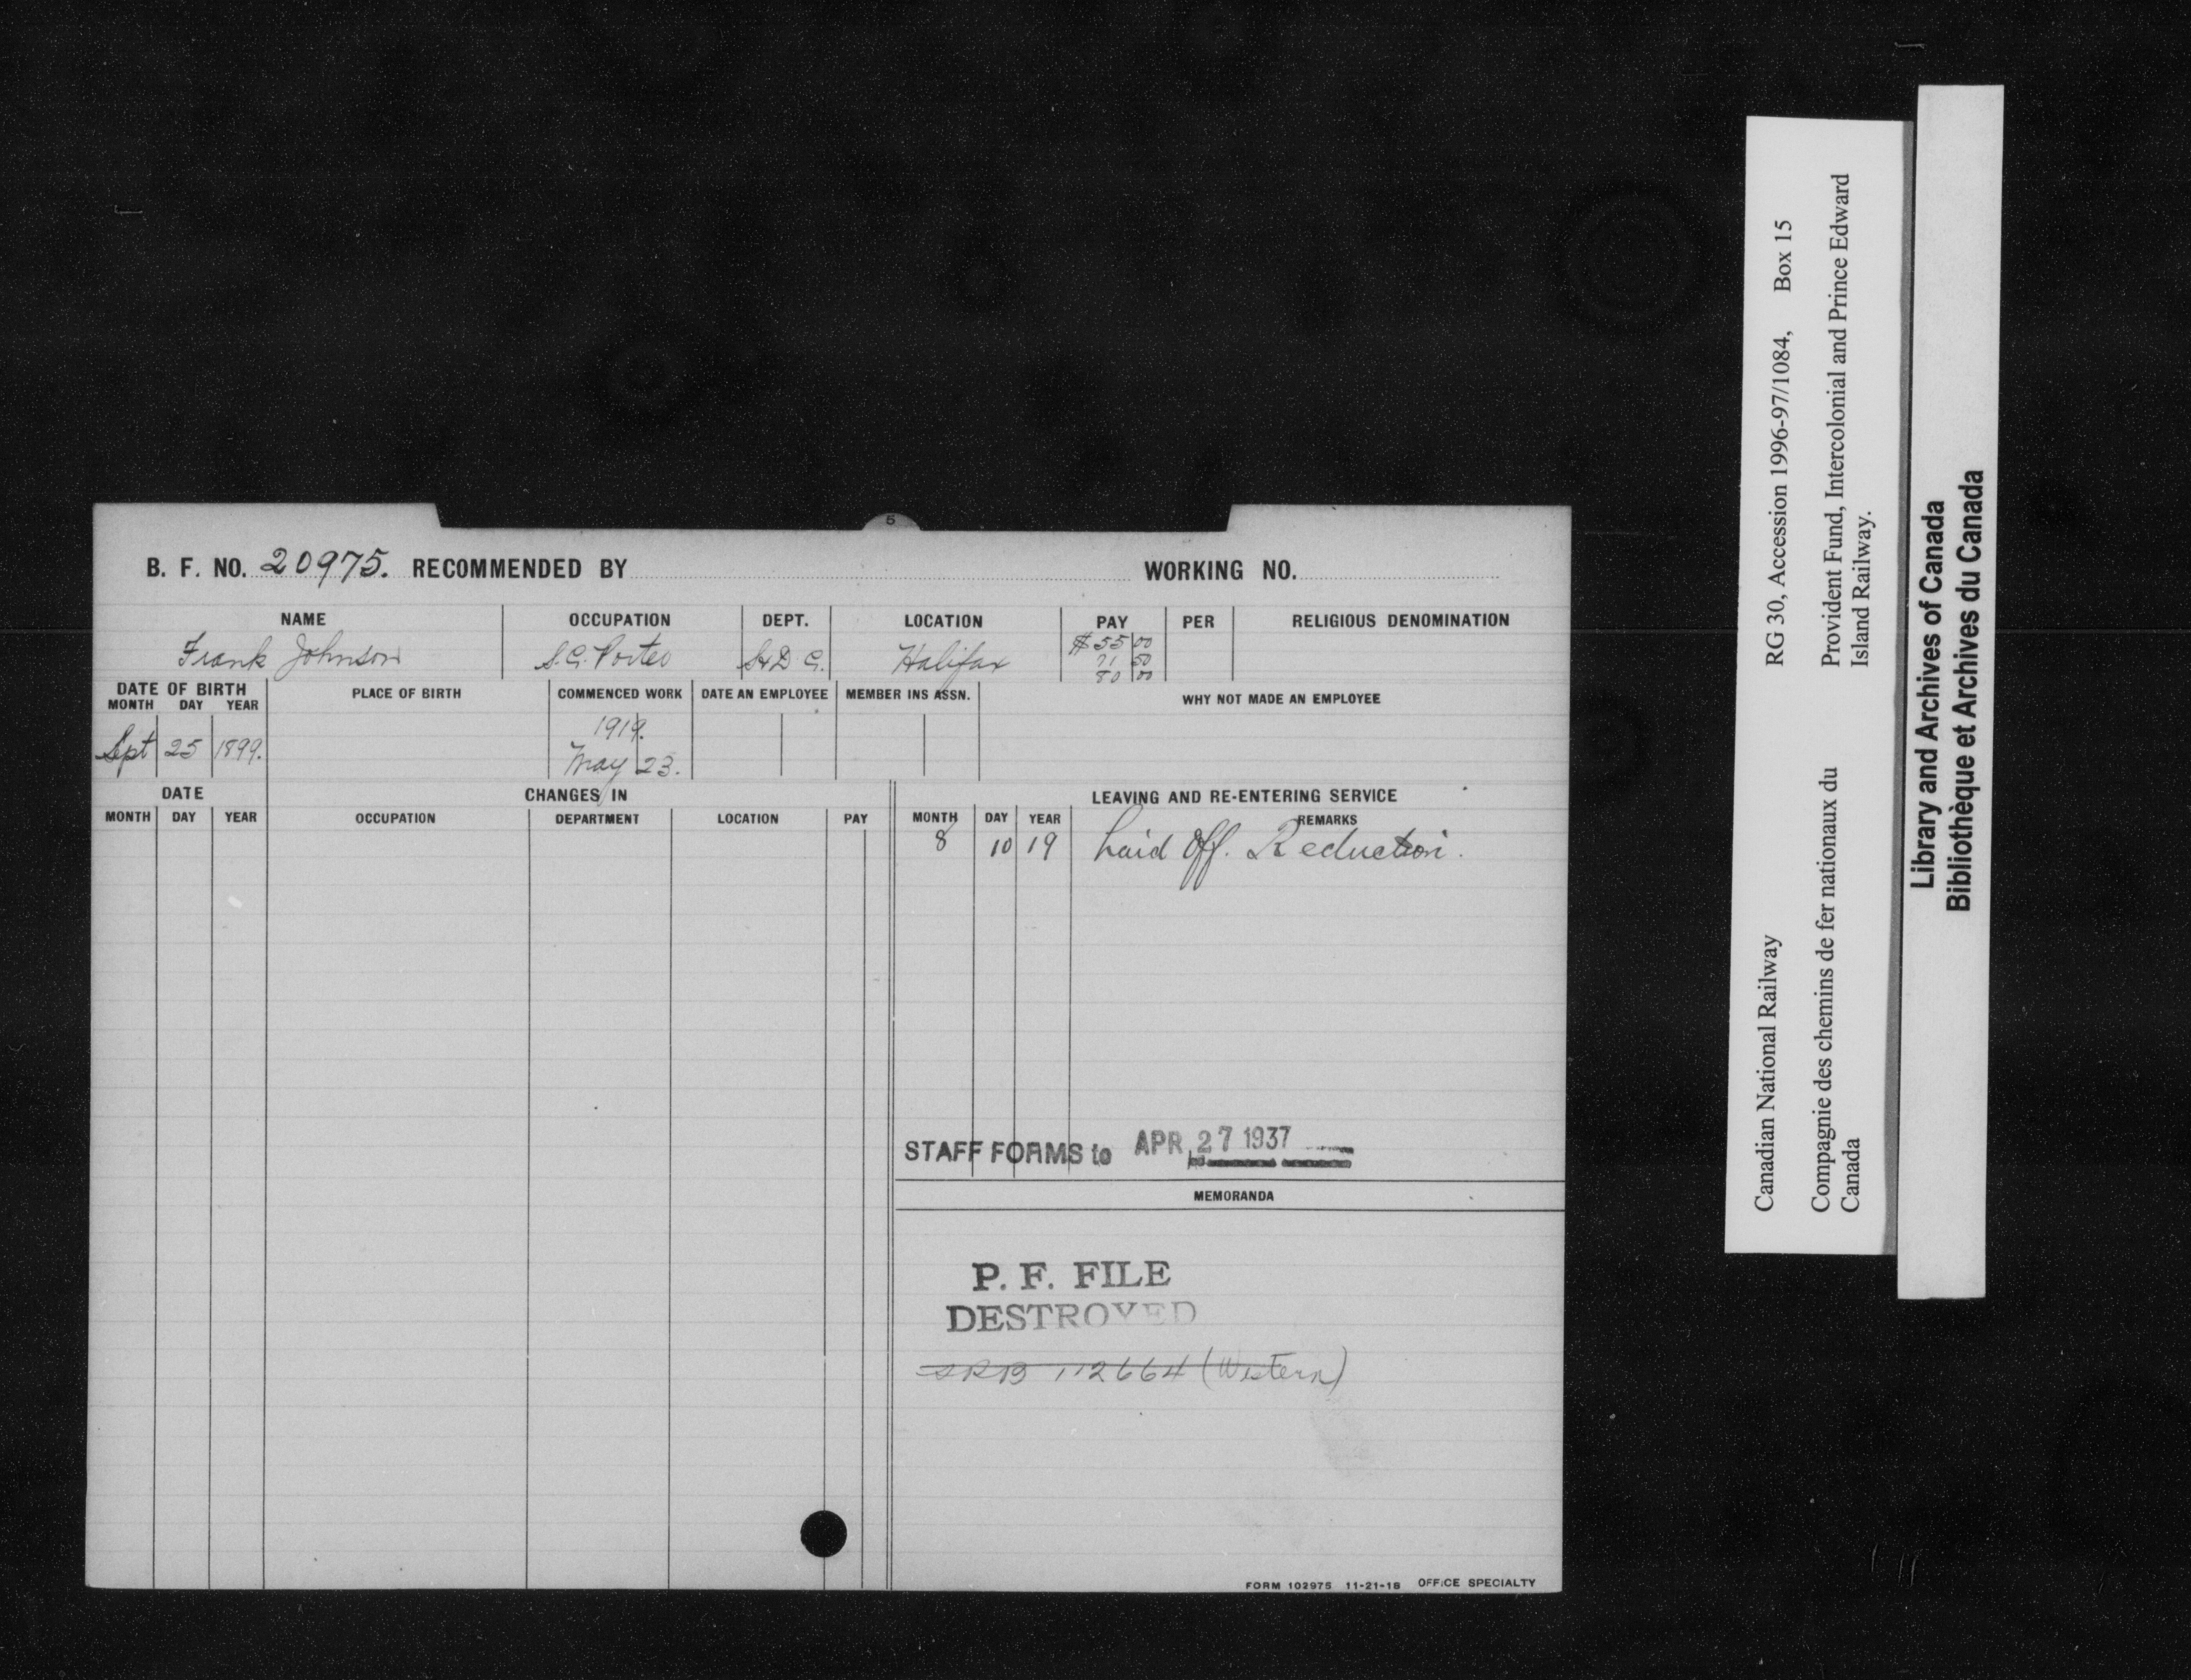 5
B. F. NO. 20975. RECOMMENDED BY WORKING NO.
NAME OCCUPATION DEPT. LOCATION PAY PER RELIGIOUS DENOMINATION
Frank Johnson S.C. Porter S&D C. Halifax $55 00
71 50
80 00
DATE OF BIRTH PLACE OF BIRTH COMMENCED WORK DATE AN EMPLOYEE MEMBER INS ASSN. WHY NOT MADE AN EMPLOYEE
MONTH DAY YEAR
1919.
Sept 25 1899. May 23.
DATE CHANGES IN LEAVING AND RE-ENTERING SERVICE
MONTH DAY YEAR OCCUPATION DEPARTMENT LOCATION PAY MONTH DAY YEAR REMARKS
8 10 19 Laid Off. Reduction.
STAFF FORMS to APR 27 1937
MEMORANDA
P. F. FILE
DESTROYED
SRB 112664 (Western)
FORM 102975 11-21-18 OFFICE SPECIALTY
Canadian National Railway RG 30, Accession 1996-97/1084, Box 15
Compagnie des chemins de fer nationaux du Provident Fund, Intercolonial and Prince Edward
Canada Island Railway.
Library and Archives of Canada
Bibliothèque et Archives du Canada